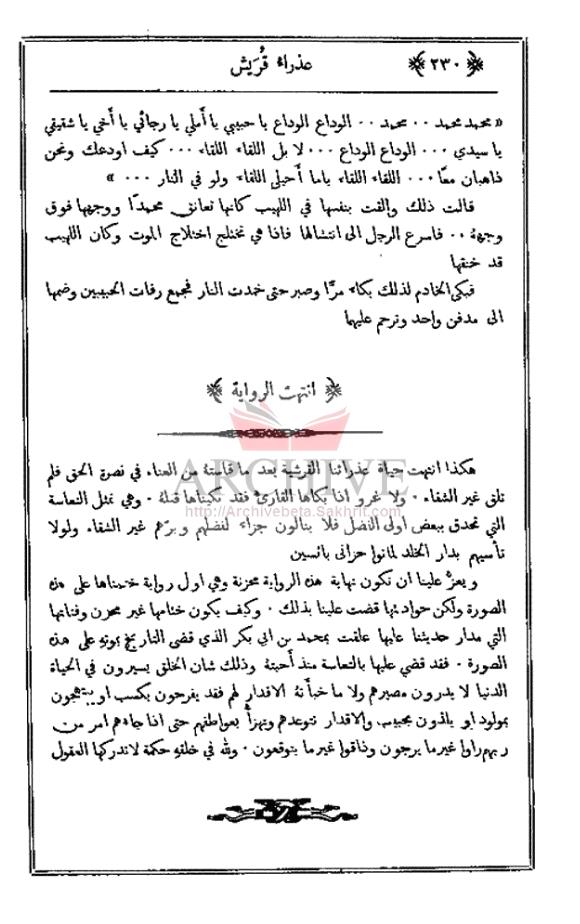 ﴿ ٢٣٠ ﴾ عذراء قُرَيش
« محمد محمد ٠٠ محمد ٠٠ الوداع الوداع يا حبيبي يا أملي يا رجائي يا أخي يا شقيقي
يا سيدي ٠٠٠ الوداع الوداع ٠٠٠ لا بل اللقاء اللقاء ٠٠٠ كيف اودعك ونحن
ذاهبان معًا ٠٠٠ اللقاء اللقاء ياما أحيلى اللقاء ولو في النار ٠٠٠ »
قالت ذلك والقت بنفسها في اللهيب كانها تعانق محمدًا ووجهها فوق
وجههِ ٠٠ فاسرع الرجل الى انتشالها فاذا هي تختلج اختلاج الموت وكان اللهيب
قد خنقها
فبكى الخادم لذلك بكاء مرًّا وصبر حتى خمدت النار فجمع رفات الحبيبين وضمها
الى مدفن واحد وترحم عليهما
﴿ انتهت الرواية ﴾
هكذا انتهت حياة عذرائنا القرشية بعد ما قاستهُ من العناء في نصرة الحق فلم
تلقَ غير الشقاء ٠ ولا غرو اذا بكاها القارئ فقد بكيناها قبلهُ ٠ وهي تمثل التعاسة
التي تحدق ببعض اولى الفضل فلا ينالون جزاء لفضلهم وبرّهم غير الشقاء ولولا
تأسيهم بدار الخلد لماتوا حزانى بائسين
ويعزُّ علينا ان تكون نهاية هذه الرواية محزنة وهي اول رواية ختمناها على هذه
الصورة ولكن حوادثها قضت علينا بذلك ٠ وكيف يكون ختامها غير محزن وفتاتها
التي مدار حديثنا عليها علقت بمحمد بن ابي بكر الذي قضى التاريخ بموتهِ على هذه
الصورة ٠ فقد قضي عليها بالتعاسة منذ أحبتهُ وذلك شان الخلق يسيرون في الحياة
الدنيا لا يدرون مصيرهم ولا ما خبأتهُ الاقدار لهم فقد يفرحون بكسب او يبتهجون
بمولود او يلذون بحبيب والاقدار تتوعدهم وتهزأ بعواطفهم حتى اذا جاءهم امر من
ربهم راوا غير ما يرجون وذاقوا غير ما يتوقعون ٠ ولله في خلقهِ حكمة لا تدركها العقول
ARCHIVE
http://Archivebeta.Sakhrit.com